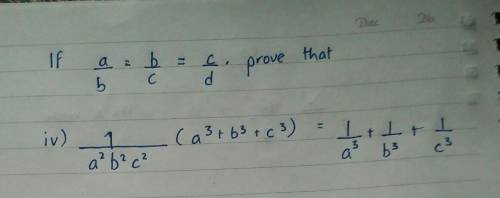 Date No
If a/b = b/c = c/d. prove that
iv) 1/(a²b²c²) (a³ + b³ + c³) = 1/a³ + 1/b³ + 1/c³